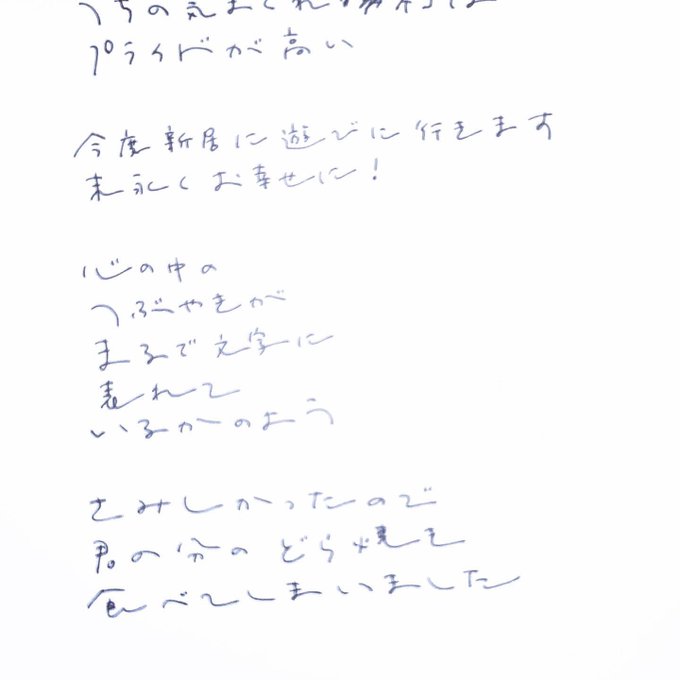 うちの気まぐれ
プライドが高い
今度新居に遊びに行きます
末永くお幸せに!
心の中の
つぶやきが
まるで文字に
表れて
いるかのよう
さみしかったので
君の分のどら焼も
食べてしまいました